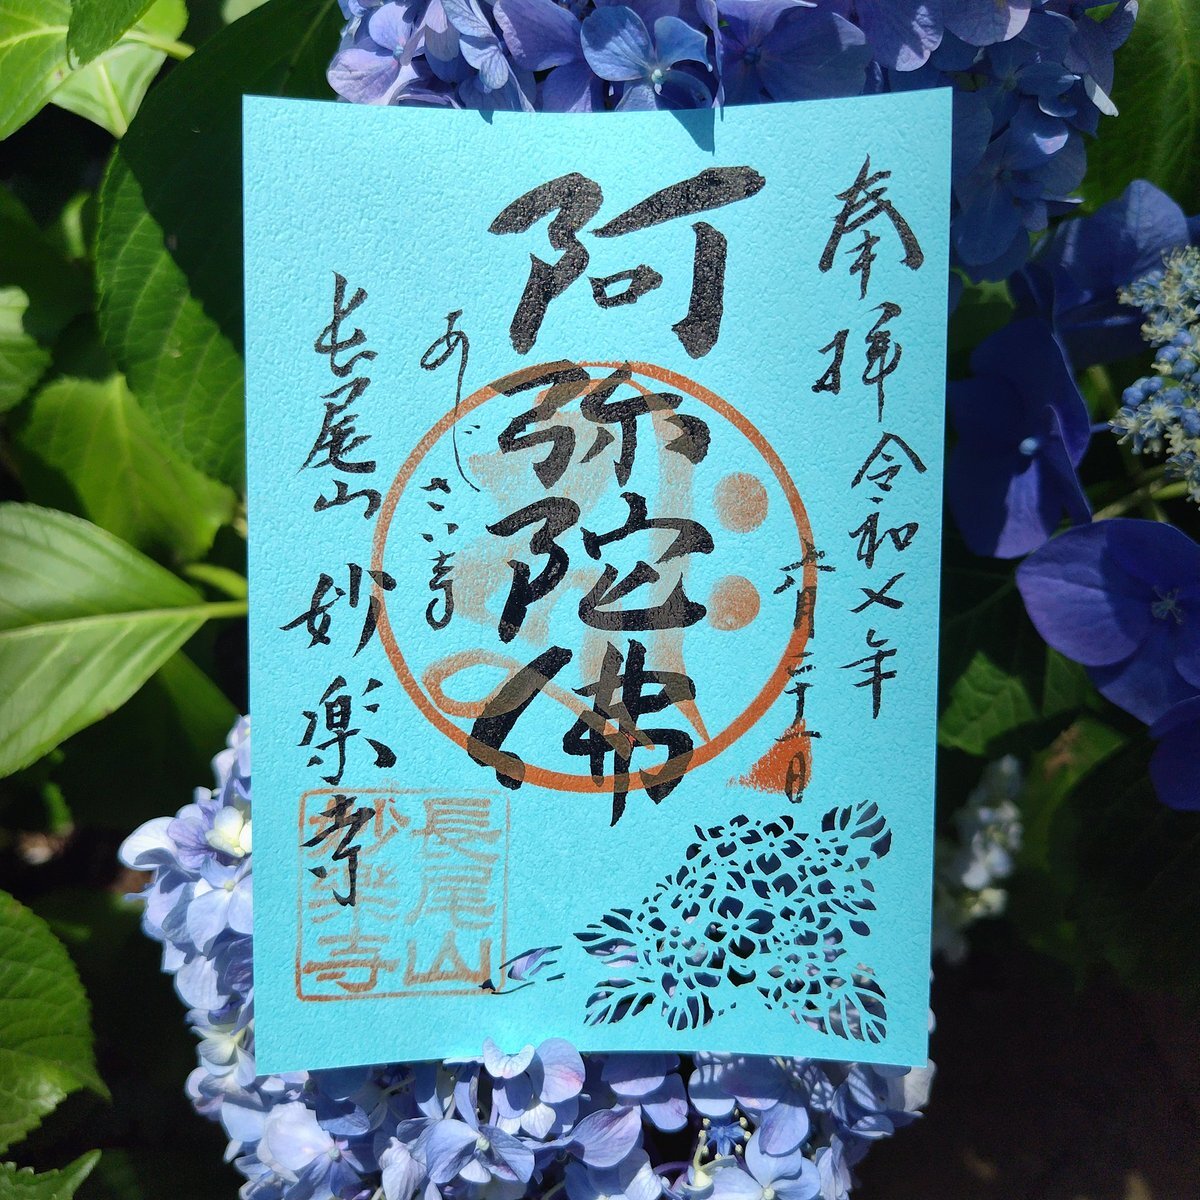 奉拝 令和七年
六月二十一日
阿弥陀佛
あじさい寺
長尾山 妙楽寺
長尾山
妙樂寺